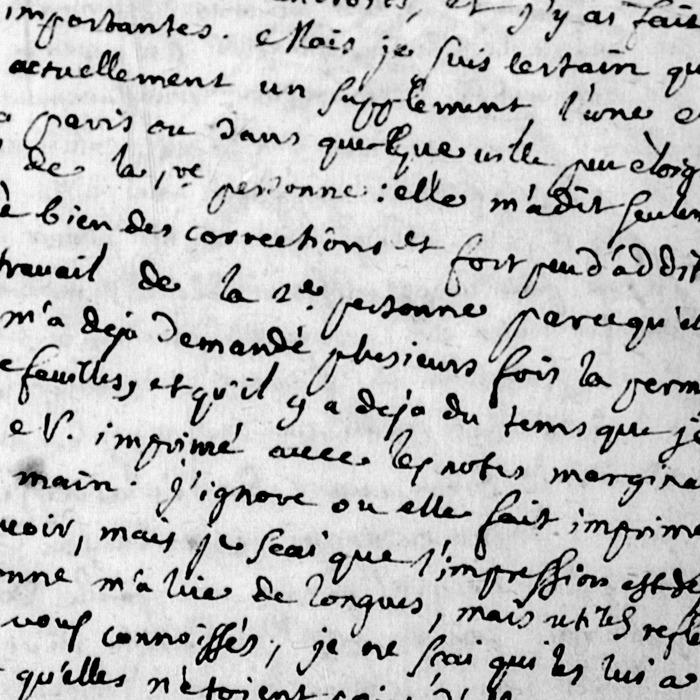 importantes. Mais je suis certain qu
actuellement un supplement, l'une e
paris ou dans quelque ville peu eloig
de la 1re personne: elle m'a dit seulem
bien des corrections et fort peu d'addit
travail de la 2e personne parcequ'el
m'a deja demandé plusieurs fois la perm
feuilles, et qu'il y a deja du tems que je
e V. imprimé avec les notes margina
main. J'ignore ou elle fait imprime
uoir, mais je scai que l'impression est de
onne m'a lüe de longues, mais utiles refle
vous connoissés, je ne scai qui les lui a
qu'elles n'etoient